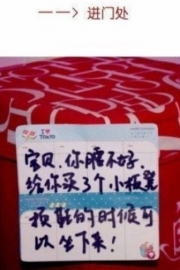 ——> 进门处
TOKYO
宝贝,你腰不好,
给你买了个小板凳
换鞋的时候可
以坐下来!